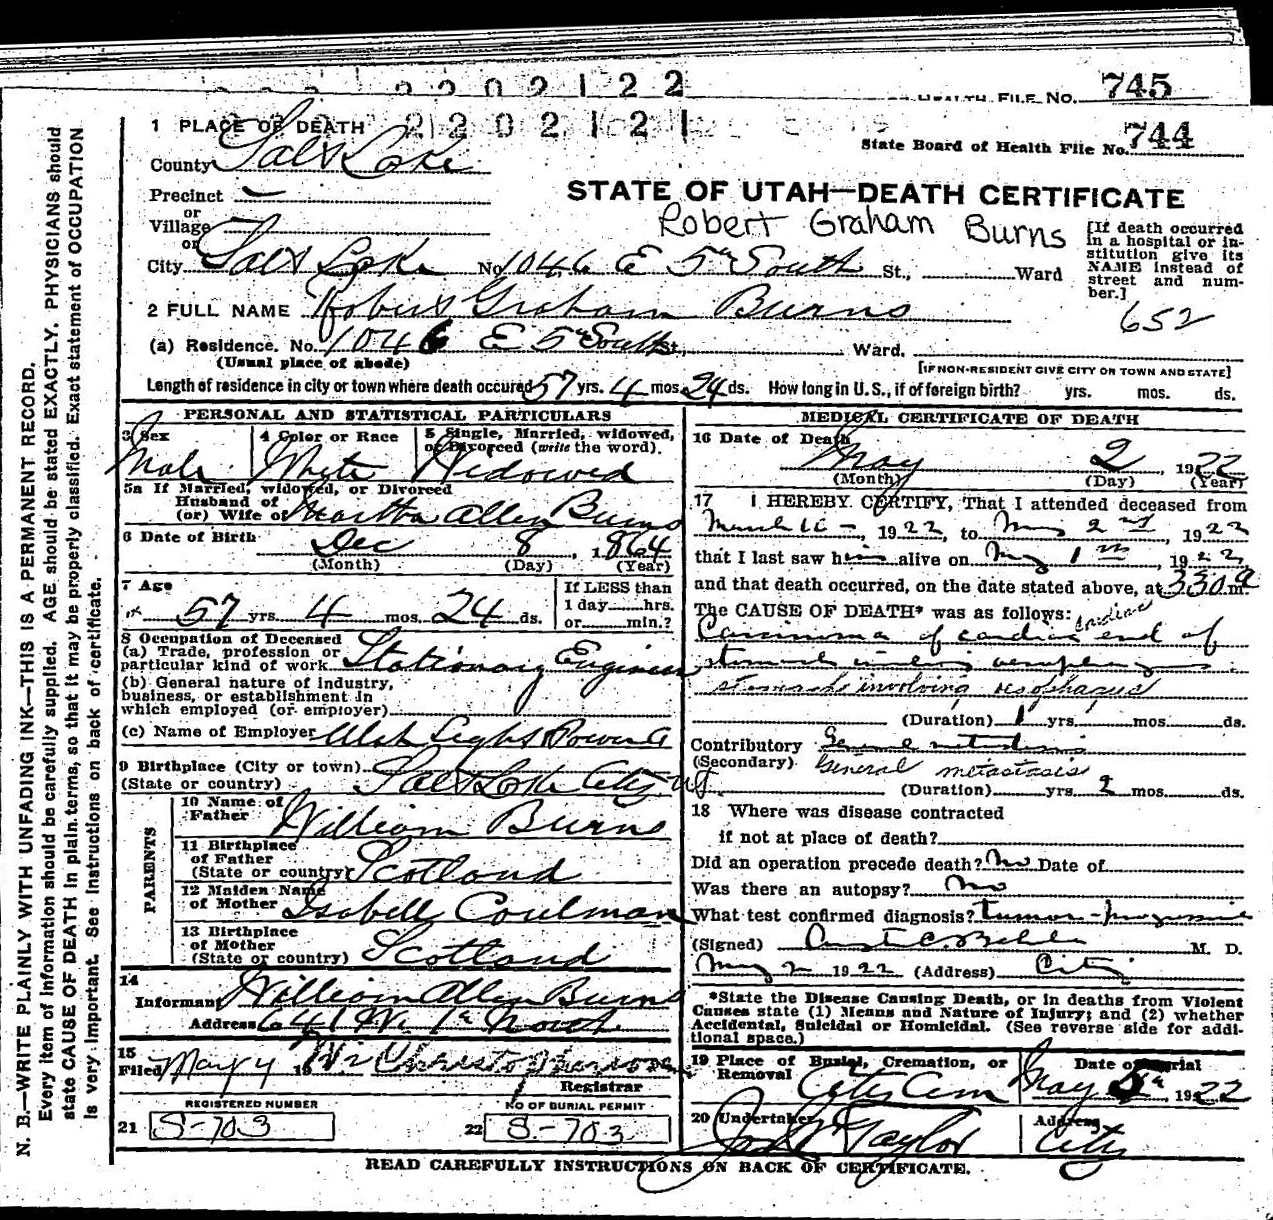 745
HEALTH FILE NO.
2202122
2202121
1 PLACE OF DEATH
State Board of Health File No. 744
County Salt Lake
Precinct —
STATE OF UTAH—DEATH CERTIFICATE
or
Village
Robert Graham Burns
or
City Salt Lake No. 1046 E 5th South St., Ward
[If death occurred
in a hospital or in-
stitution give its
NAME instead of
street and num-
ber.]
2 FULL NAME Robert Graham Burns
652
(a) Residence. No. 1046 E 5th South St., Ward.
(Usual place of abode)
[IF NON-RESIDENT GIVE CITY OR TOWN AND STATE]
Length of residence in city or town where death occured 57 yrs. 4 mos. 24 ds. How long in U.S., if of foreign birth? yrs. mos. ds.
PERSONAL AND STATISTICAL PARTICULARS
3 Sex
Male
4 Color or Race
White
5 Single, Married, widowed,
or Divorced (write the word).
Widowed
5a If Married, widowed, or Divorced
Husband of
(or) Wife of Martha Allen Burns
6 Date of Birth
Dec 8, 1864
(Month) (Day) (Year)
7 Age
57 yrs. 4 mos. 24 ds.
If LESS than
1 day.....hrs.
or.....min.?
8 Occupation of Deceased
(a) Trade, profession or
particular kind of work Stationary Engineer
(b) General nature of industry,
business, or establishment in
which employed (or employer)
(c) Name of Employer Utah Light Power Co
9 Birthplace (City or town)
(State or country) Salt Lake City Ut.
PARENTS
10 Name of
Father William Burns
11 Birthplace
of Father
(State or country) Scotland
12 Maiden Name
of Mother Isabell Coulman
13 Birthplace
of Mother
(State or country) Scotland
14
Informant William Allen Burns
Address 641 W. 1st North
15
Filed May 4 19
Registrar
REGISTERED NUMBER
21 S-703
NO OF BURIAL PERMIT
22 S-703
MEDICAL CERTIFICATE OF DEATH
16 Date of Death
May 2, 1922
(Month) (Day) (Year)
17 I HEREBY CERTIFY, That I attended deceased from
March 16 -, 1922, to May 2nd, 1922
that I last saw him alive on May 1st, 1922,
and that death occurred, on the date stated above, at 330 a m.
The CAUSE OF DEATH* was as follows: cardiac
Carcinoma of cardiac end of
stomach involving oesophagus
stomach involving oesophagus
(Duration) 1 yrs. mos. ds.
Contributory General metastasis
(Secondary) General metastasis
(Duration) yrs. 2 mos. ds.
18 Where was disease contracted
if not at place of death?
Did an operation precede death? No Date of
Was there an autopsy? No
What test confirmed diagnosis? Tumor - progressive
(Signed) M. D.
May 2 1922 (Address) City
*State the Disease Causing Death, or in deaths from Violent
Causes state (1) Means and Nature of Injury; and (2) whether
Accidental, Suicidal or Homicidal. (See reverse side for addi-
tional space.)
19 Place of Burial, Cremation, or
Removal City Cem
Date of Burial
May 5th, 1922
20 Undertaker
Taylor
Address
City
READ CAREFULLY INSTRUCTIONS ON BACK OF CERTIFICATE.
N. B.—WRITE PLAINLY WITH UNFADING INK—THIS IS A PERMANENT RECORD.
Every item of information should be carefully supplied. AGE should be stated EXACTLY. PHYSICIANS should
state CAUSE OF DEATH in plain terms, so that it may be properly classified. Exact statement of OCCUPATION
is very important. See Instructions on back of certificate.